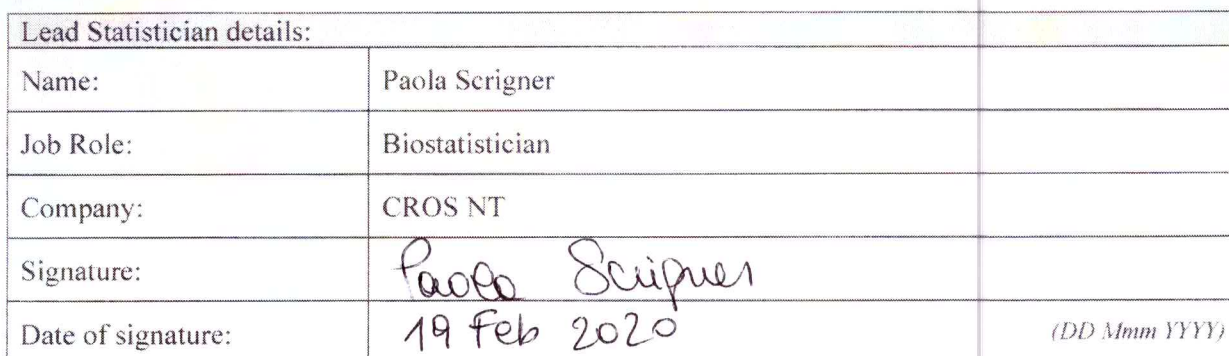 Lead Statistician details:
Name: Paola Scrigner
Job Role: Biostatistician
Company: CROS NT
Signature: Paola Scrigner
Date of signature: 19 Feb 2020 (DD Mmm YYYY)